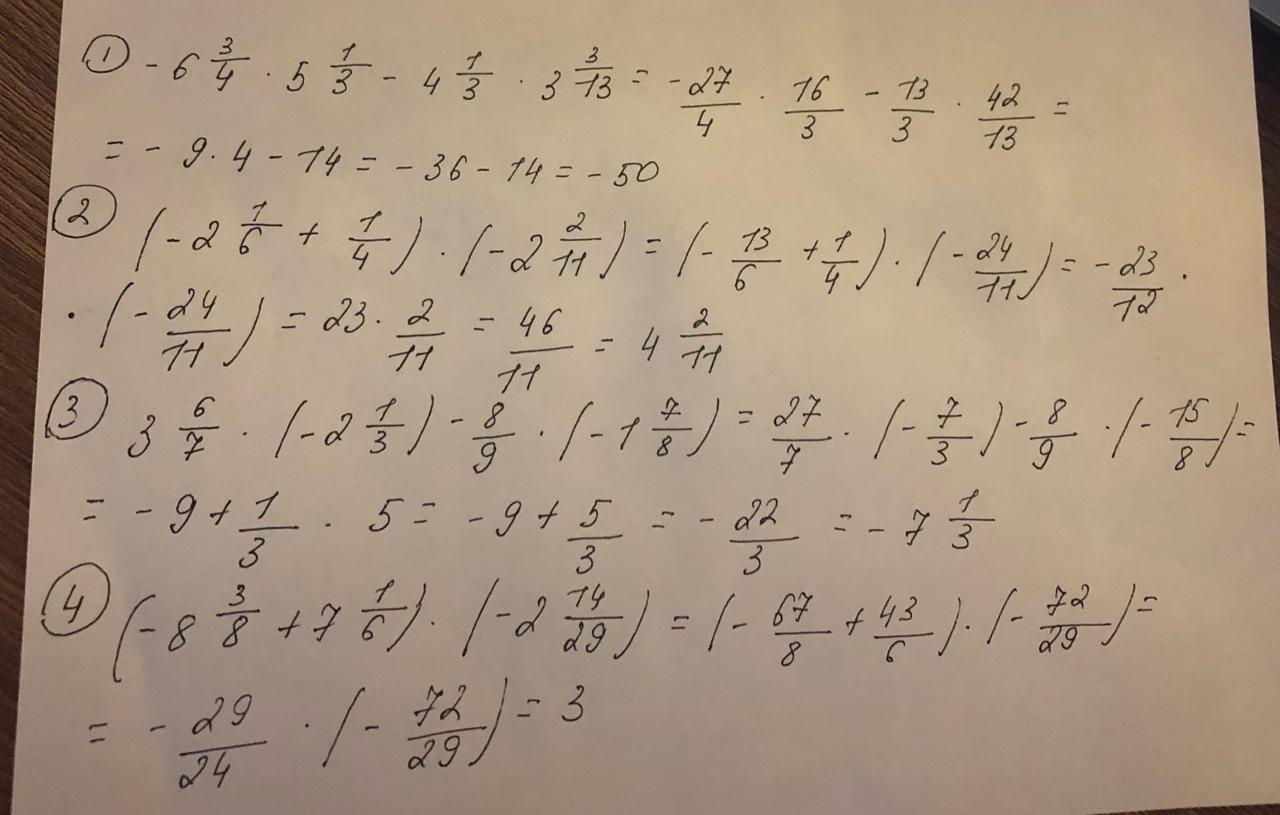 ① - 6 3/4 · 5 1/3 - 4 1/3 · 3 3/13 = - 27/4 · 16/3 - 13/3 · 42/13 =
= - 9 · 4 - 14 = - 36 - 14 = - 50
② (- 2 1/6 + 1/4) · (- 2 2/11) = (- 13/6 + 1/4) · (- 24/11) = - 23/12 ·
· (- 24/11) = 23 · 2/11 = 46/11 = 4 2/11
③ 3 6/7 · (- 2 1/3) - 8/9 · (- 1 7/8) = 27/7 · (- 7/3) - 8/9 · (- 15/8) =
= - 9 + 1/3 · 5 = - 9 + 5/3 = - 22/3 = - 7 1/3
④ (- 8 3/8 + 7 1/6) · (- 2 14/29) = (- 67/8 + 43/6) · (- 72/29) =
= - 29/24 · (- 72/29) = 3